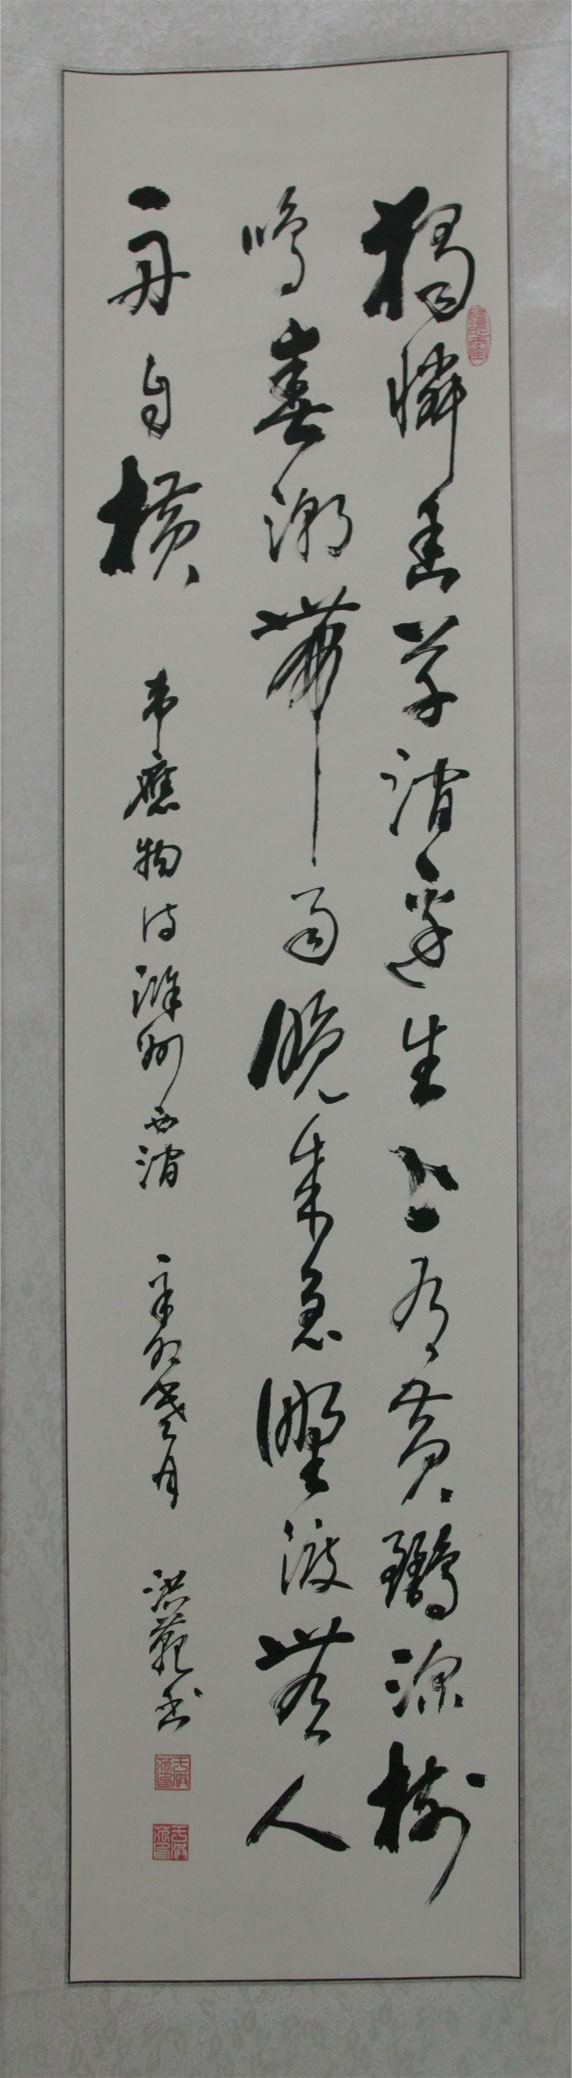 獨憐幽草澗邊生上有黃鸝深樹
鳴春潮帶雨晚來急野渡無人
舟自橫 韋應物詩滁州西澗 辛卯 月 洪範書